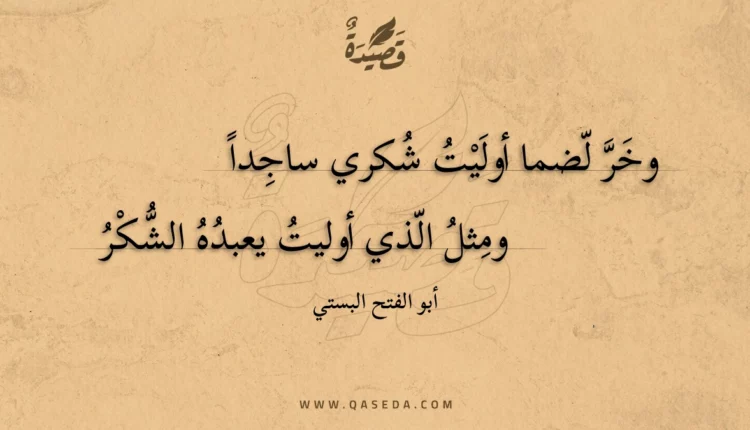 قَصِيدَةٌ
وخَرَّ لّضما أولَيْتُ شُكري ساجِداً
ومِثلُ الّذي أوليتُ يعبدُهُ الشُّكْرُ
أبو الفتح البستي
WWW.QASEDA.COM